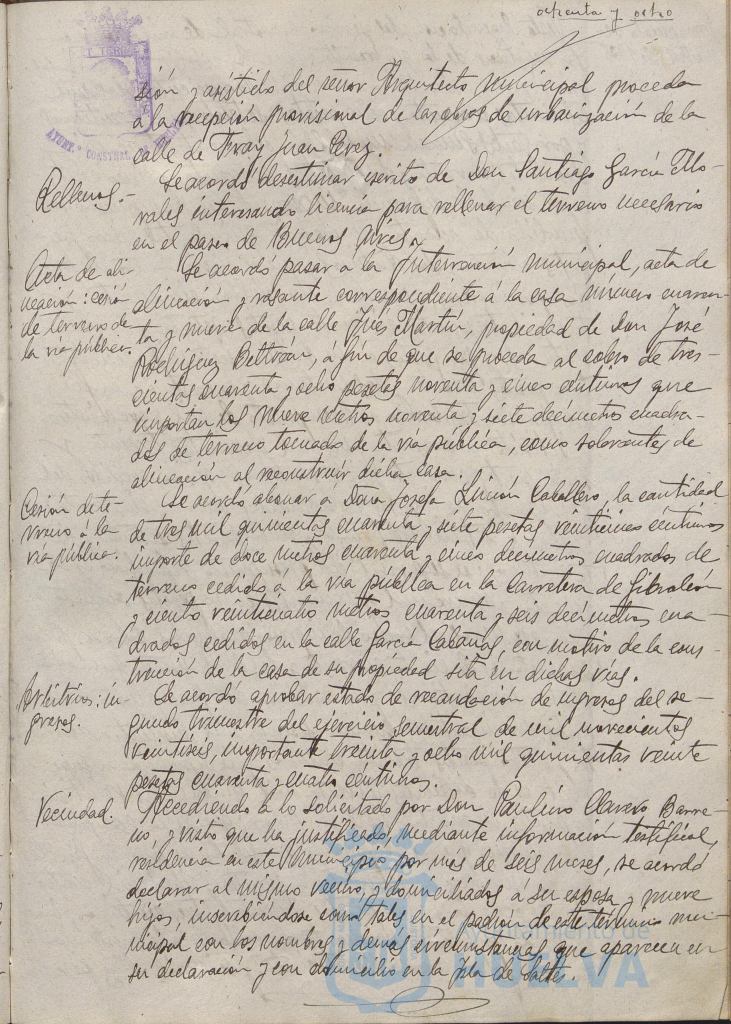 ochenta y ocho
sión y asistido del señor Arquitecto municipal proceda
á la recepción provisional de las obras de urbanización de la
calle de Fray Juan Perez.
Rellenos.-
Se acordó desestimar escrito de Don Santiago García Mo-
rales interesando licencia para rellenar el terreno necesario
en el paseo de Buenos Aires.
Acta de ali-
neación: cesión
de terreno de
la vía pública.
Se acordó pasar á la Intervención municipal, acta de
alineación y rasante correspondiente á la casa número cuaren-
ta y nueve de la calle Inés Martín, propiedad de Don José
Rodríguez Beltrán, á fin de que se proceda al cobro de tres-
cientas cuarenta y ocho pesetas noventa y cinco céntimos que
importan los nueve metros noventa y siete decímetros cuadra-
dos de terreno tomado de la vía pública, como sobrantes de
alineación al reconstruir dicha casa.
Cesión de te-
rreno á la
vía pública.
Se acordó abonar a Doña Josefa Limón Caballero, la cantidad
de tres mil quinientas cuarenta y siete pesetas veinticinco céntimos
importe de doce metros cuarenta y cinco decímetros cuadrados de
terreno cedido á la vía pública en la Carretera de Gibraleón
y ciento veinticuatro metros cuarenta y seis decímetros cua-
drados cedidos en la calle García Cabañas, con motivo de la cons-
trucción de la casa de su propiedad sita en dichas vías.
Arbitrios: in-
gresos.
Se acordó aprobar estado de recaudación de ingresos del se-
gundo trimestre del ejercicio semestral de mil novecientos
veintiseis, importante treinta y ocho mil quinientas veinte
pesetas cuarenta y cuatro céntimos.
Vecindad.
Accediendo á lo solicitado por Don Paulino Clavero Barre-
no, y visto que ha justificado, mediante información testifical,
residencia en este municipio por mas de seis meses, se acordó
declarar al mismo vecino, y domiciliados á su esposa y nueve
hijos, inscribiéndose como tales en el padrón de este término mu-
nicipal con los nombres y demás circunstancias que aparecen en
su declaración y con domicilio en la Isla de Saltés.
HUELVA